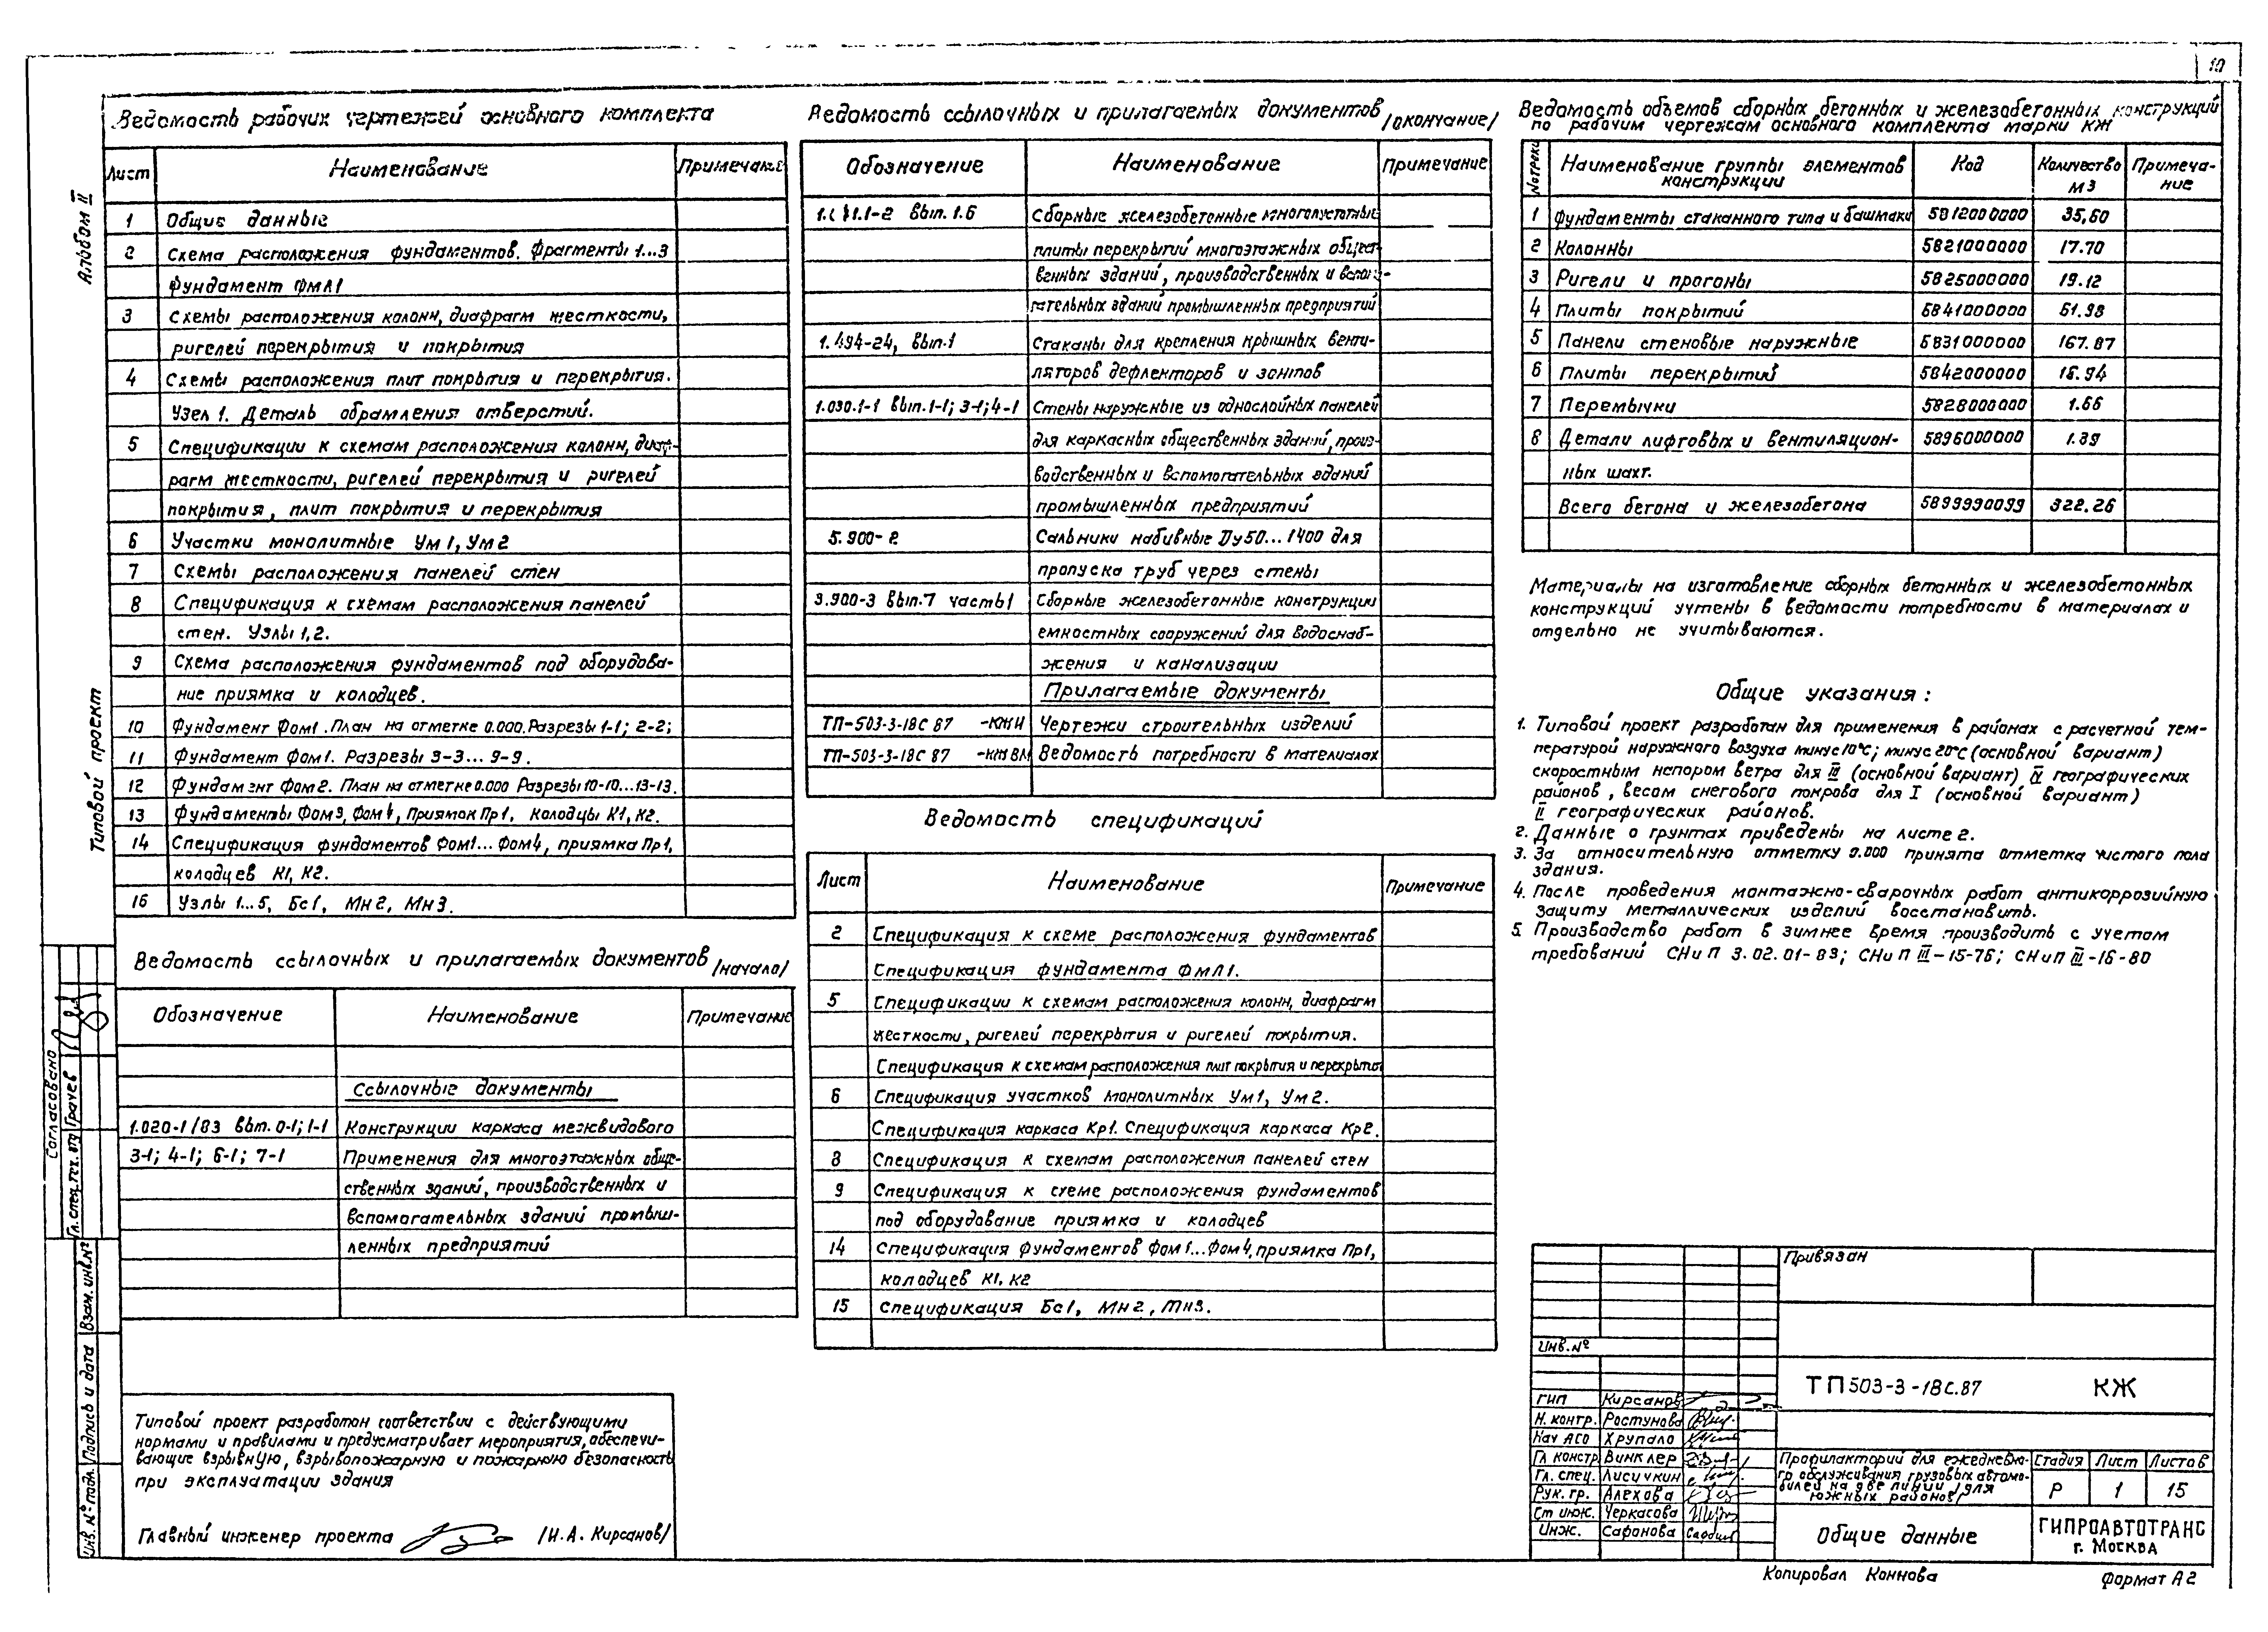 10
Альбом II
Типовой проект
Ведомость рабочих чертежей основного комплекта
Лист Наименование Примечание
1 Общие данные
2 Схема расположения фундаментов. Фрагменты 1...3
Фундамент ФмЛ1
3 Схемы расположения колонн, диафрагм жесткости,
ригелей перекрытия и покрытия
4 Схемы расположения плит покрытия и перекрытия.
Узел 1. Деталь обрамления отверстий.
5 Спецификации к схемам расположения колонн, диаф-
рагм жесткости, ригелей перекрытия и ригелей
покрытия, плит покрытия и перекрытия
6 Участки монолитные Ум1, Ум2
7 Схемы расположения панелей стен
8 Спецификация к схемам расположения панелей
стен. Узлы 1,2.
9 Схема расположения фундаментов под оборудова-
ние приямка и колодцев.
10 Фундамент Фом1. План на отметке 0.000. Разрезы 1-1; 2-2;
11 Фундамент Фом1. Разрезы 3-3... 9-9.
12 Фундамент Фом2. План на отметке 0.000 Разрезы 10-10...13-13.
13 Фундаменты Фом3, Фом4, Приямок Пр1, Колодцы К1, К2.
14 Спецификация фундаментов Фом1... Фом4, приямка Пр1,
колодцев К1, К2.
15 Узлы 1...5, Бс1, Мн2, Мн3.
Ведомость ссылочных и прилагаемых документов /начало/
Обозначение Наименование Примечание
Ссылочные документы
1.020-1/83 вып. 0-1; 1-1 Конструкции каркаса межвидового
3-1; 4-1; 6-1; 7-1 Применения для многоэтажных обще-
ственных зданий, производственных и
вспомогательных зданий промыш-
ленных предприятий
Типовой проект разработан соответствии с действующими
нормами и правилами и предусматривает мероприятия, обеспечи-
вающие взрывную, взрывопожарную и пожарную безопасность
при эксплуатации здания
Главный инженер проекта /И.А. Кирсанов/
Согласовано
Гл. спец. тех. отд Грачев
Взам. инв. №
Подпись и дата
Инв. № подл.
Ведомость ссылочных и прилагаемых документов /окончание/
Обозначение Наименование Примечание
вып. 1.6 Сборные железобетонные многопустотные
плиты перекрытий многоэтажных общест-
венных зданий, производственных и вспомо-
гательных зданий промышленных предприятий
1.494-24, вып.1 Стаканы для крепления крышных венти-
ляторов дефлекторов и зонтов
1.030.1-1 вып. 1-1; 3-1; 4-1 Стены наружные из однослойных панелей
для каркасных общественных зданий, произ-
водственных и вспомогательных зданий
промышленных предприятий
5.900-2 Сальники набивные Ду50... 1400 для
пропуска труб через стены
3.900-3 вып.7 часть1 Сборные железобетонные конструкции
емкостных сооружений для водоснаб-
жения и канализации
Прилагаемые документы
ТП-503-3-18С 87 -КЖИ Чертежи строительных изделий
ТП-503-3-18С 87 -КЖВМ Ведомость потребности в материалах
Ведомость спецификаций
Лист Наименование Примечание
2 Спецификация к схеме расположения фундаментов
Спецификация фундамента ФмЛ1.
5 Спецификации к схемам расположения колонн, диафрагм
жесткости, ригелей перекрытия и ригелей покрытия.
Спецификация к схемам расположения плит покрытия и перекрытия
6 Спецификация участков монолитных Ум1, Ум2.
Спецификация каркаса Кр1. Спецификация каркаса Кр2.
8 Спецификация к схемам расположения панелей стен
9 Спецификация к схеме расположения фундаментов
под оборудование приямка и колодцев
14 Спецификация фундаментов Фом1...Фом4, приямка Пр1,
колодцев К1, К2
15 Спецификация Бс1, Мн2, Мн3.
Ведомость объемов сборных бетонных и железобетонных конструкций
по рабочим чертежам основного комплекта марки КЖ
№ строки Наименование группы элементов конструкции Код Количество м3 Примеча-ние
1 Фундаменты стаканного типа и башмаки 5812000000 35,60
2 Колонны 5821000000 17.70
3 Ригели и прогоны 5825000000 19.12
4 Плиты покрытий 5841000000 61.98
5 Панели стеновые наружные 5831000000 167.87
6 Плиты перекрытий 5842000000 16.94
7 Перемычки 5828000000 1.66
8 Детали лифтовых и вентиляцион- 5896000000 1.39
ных шахт.
Всего бетона и железобетона 5899990099 322.26
Материалы на изготовление сборных бетонных и железобетонных
конструкций учтены в ведомости потребности в материалах и
отдельно не учитываются.
Общие указания:
1. Типовой проект разработан для применения в районах с расчетной тем-
пературой наружного воздуха минус 10°С; минус 20°С (основной вариант)
скоростным непором ветра для III (основной вариант) IV географических
районов, весом снегового покрова для I (основной вариант)
II географических районов.
2. Данные о грунтах приведены на листе 2.
3. За относительную отметку 0.000 принята отметка чистого пола
здания.
4. После проведения монтажно-сварочных работ антикоррозийную
защиту металлических изделий восстановить.
5. Производство работ в зимнее время производить с учетом
требований СНиП 3.02.01-83; СНиП III-15-76; СНиП III-16-80
Привязан
Инв. №
ТП 503-3-18С.87 КЖ
ГИП Кирсанов
Н. контр. Ростунова
Нач АСО Хрупало
Гл констр Винклер
Гл. спец. Лисичкин
Рук. гр. Алехова
Ст инж. Черкасова
Инж. Сафонова
Профилакторий для ежедневно-
го обслуживания грузовых автомо-
билей на две линии /для
южных районов/
Стадия Лист Листов
Р 1 15
Общие данные
ГИПРОАВТОТРАНС
г. Москва
Копировал Коннова Формат А2